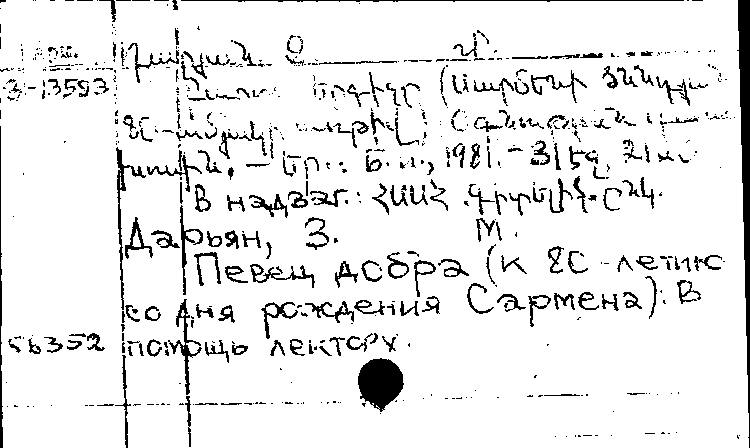 Арм.
Դարյան Զ.
3-13593
երգիչը (Սարմենի ծննդյան
80-ամյակի առթիվ) Օգնություն
Եր.: Б. и., 1981. – 31 էջ, 21 սմ.
В надзаг.: ՀՍՍՀ. գիտելիք. ընկ.
Дарьян, З. М.
Певец добра (К 80-летию
со дня рождения Сармена): В
56352 помощь лектору.